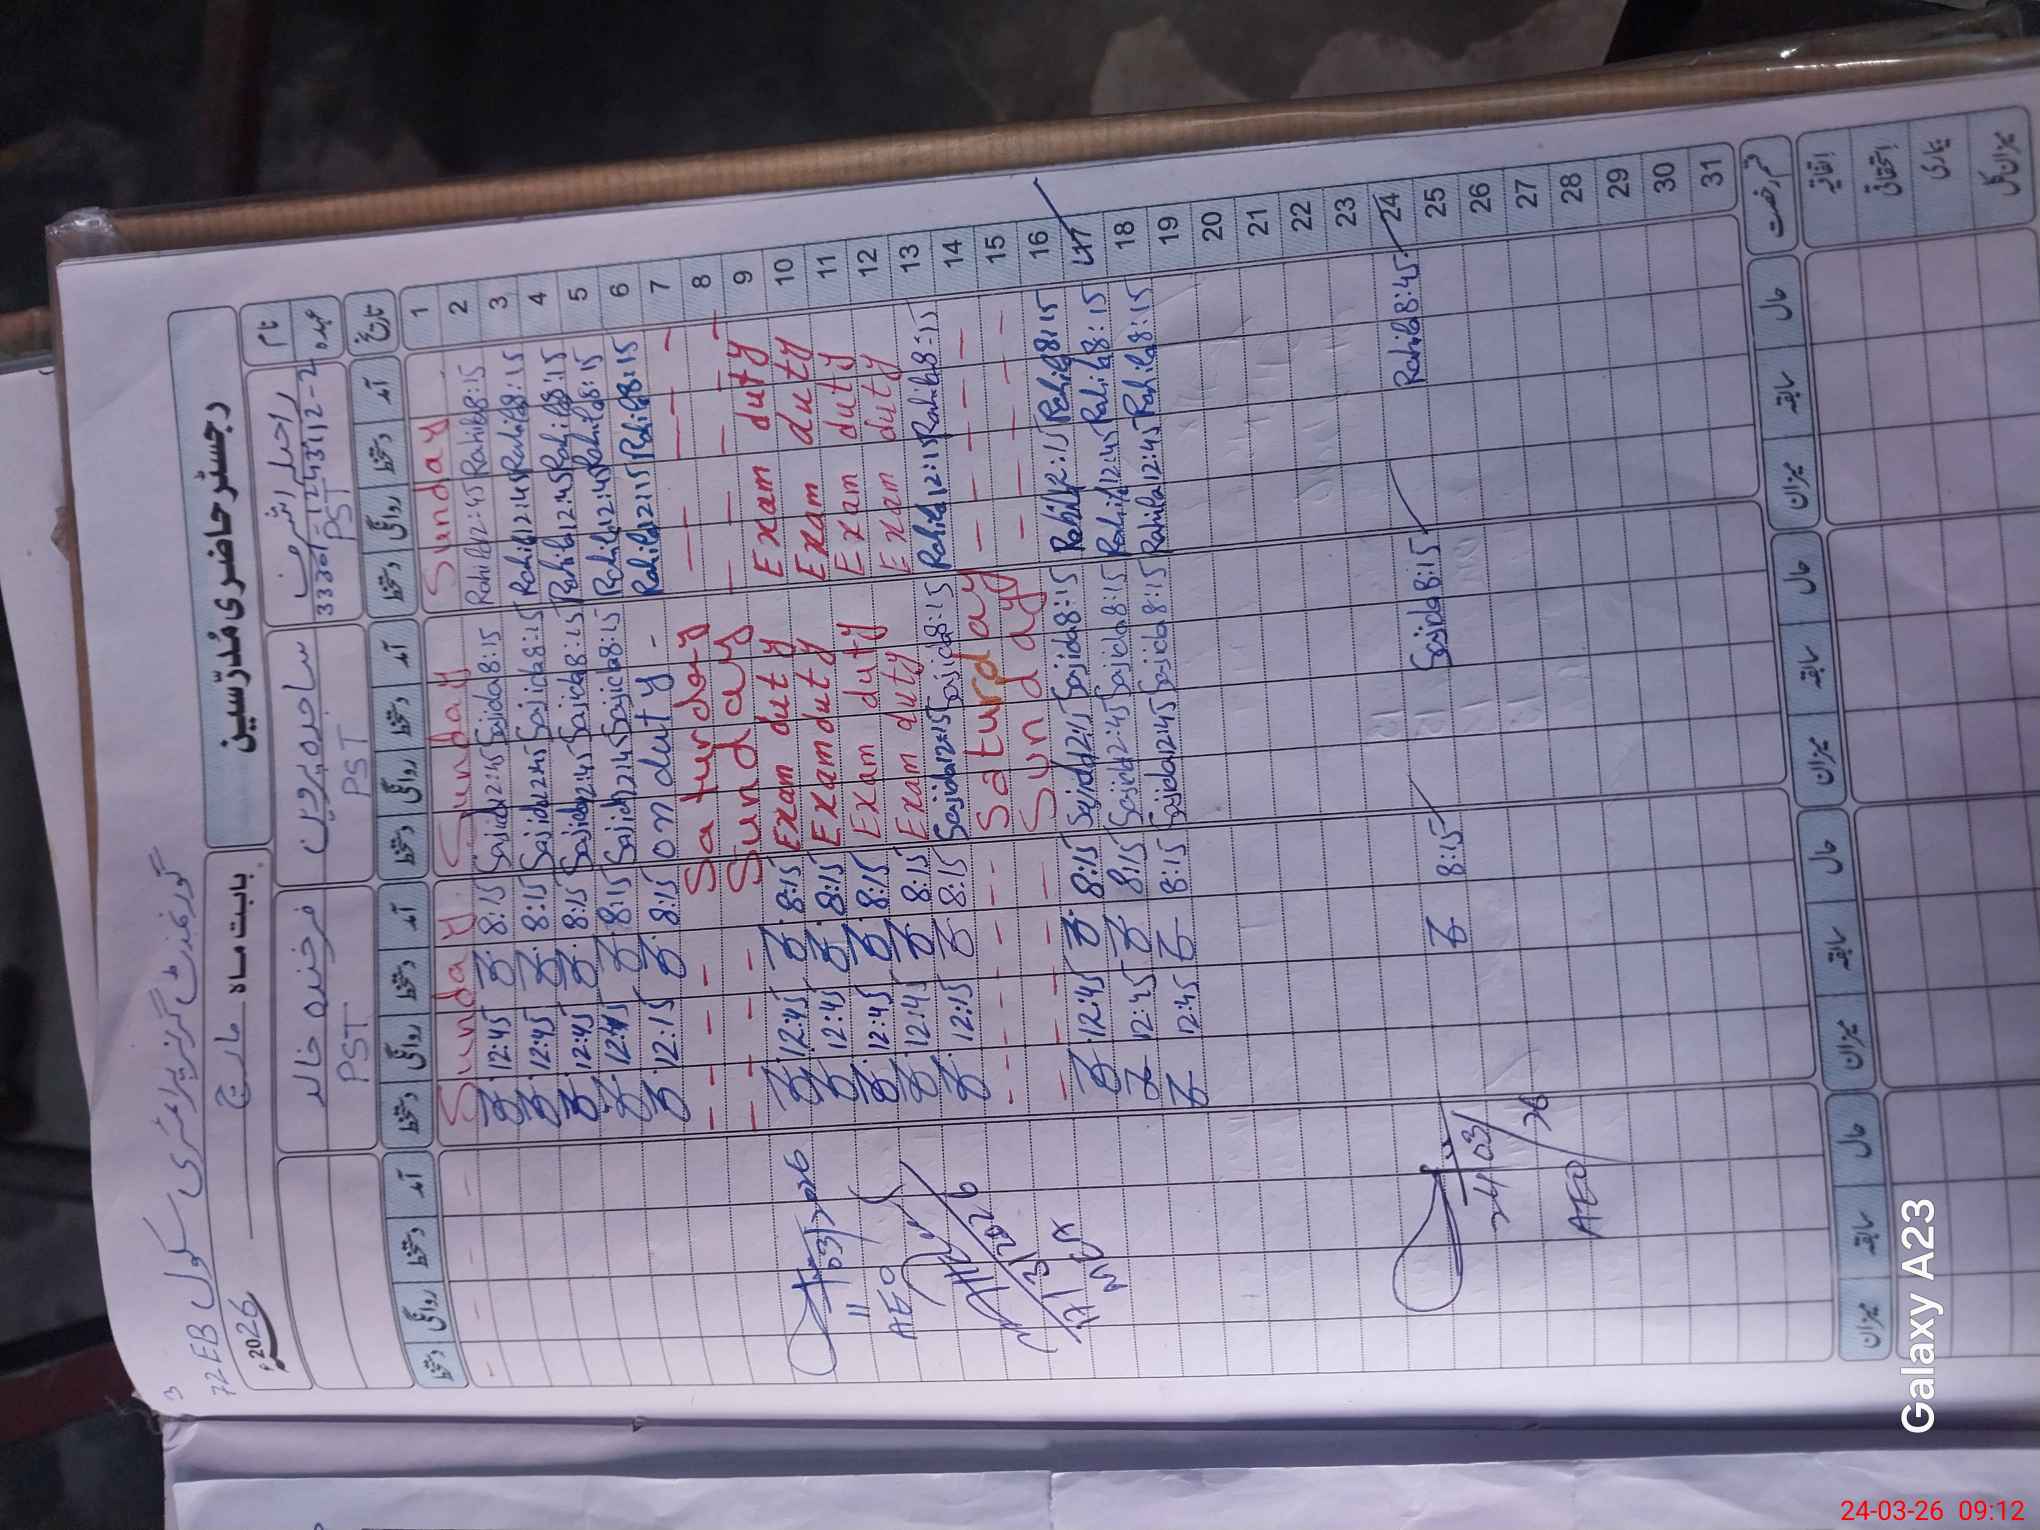 گورنمنٹ گرلز پرائمری سکول 72EB
3
رجسٹر حاضری مُدرّسین
بابت ماہ مارچ 2026ء
نام راحیلہ اشرف ساجدہ پروین فرخندہ خالد
33301-1243112-2
عہدہ PST PST PST
تاریخ آمد دستخط روانگی دستخط آمد دستخط روانگی دستخط آمد دستخط روانگی دستخط آمد دستخط روانگی دستخط
1 Sunday Sunday Sunday
2 Rahila 8:15 Rahila 12:45 Sajida 8:15 Sajida 12:45 8:15 12:45
3 Rahila 8:15 Rahila 12:45 Sajida 8:15 Sajida 12:45 8:15 12:45
4 Rahila 8:15 Rahila 12:45 Sajida 8:15 Sajida 12:45 8:15 12:45
5 Rahila 8:15 Rahila 12:45 Sajida 8:15 Sajida 12:45 8:15 12:45
6 Rahila 8:15 Rahila 12:15 on duty - 8:15 12:15
7 Saturday
8 Sunday
9 Exam duty Exam duty 8:15 12:45
10 Exam duty Exam duty 8:15 12:45
11 Exam duty Exam duty 8:15 12:45
12 Exam duty Exam duty 8:15 12:45
13 Rahila 8:15 Rahila 12:15 Sajida 8:15 Sajida 12:15 8:15 12:15
14 Saturday
15 Sunday
16 Rahila 8:15 Rahila 12:15 Sajida 8:15 Sajida 12:15 8:15 12:45
17 Rahila 8:15 Rahila 12:45 Sajida 8:15 Sajida 12:45 8:15 12:45
18 Rahila 8:15 Rahila 12:45 Sajida 8:15 Sajida 12:45 8:15 12:45
19
20
21
22
23
24 Rahila 8:45 Sajida 8:15 8:15
25
26
27
28
29
30
31
AEO
17/3/2026
MEA
24/03/26
AEO
قسم رخصت حال سابقہ میزان حال سابقہ میزان حال سابقہ میزان حال سابقہ میزان
اتفاقیہ
استحقاقی
بیماری
میزان کل
Galaxy A23
24-03-26 09:12